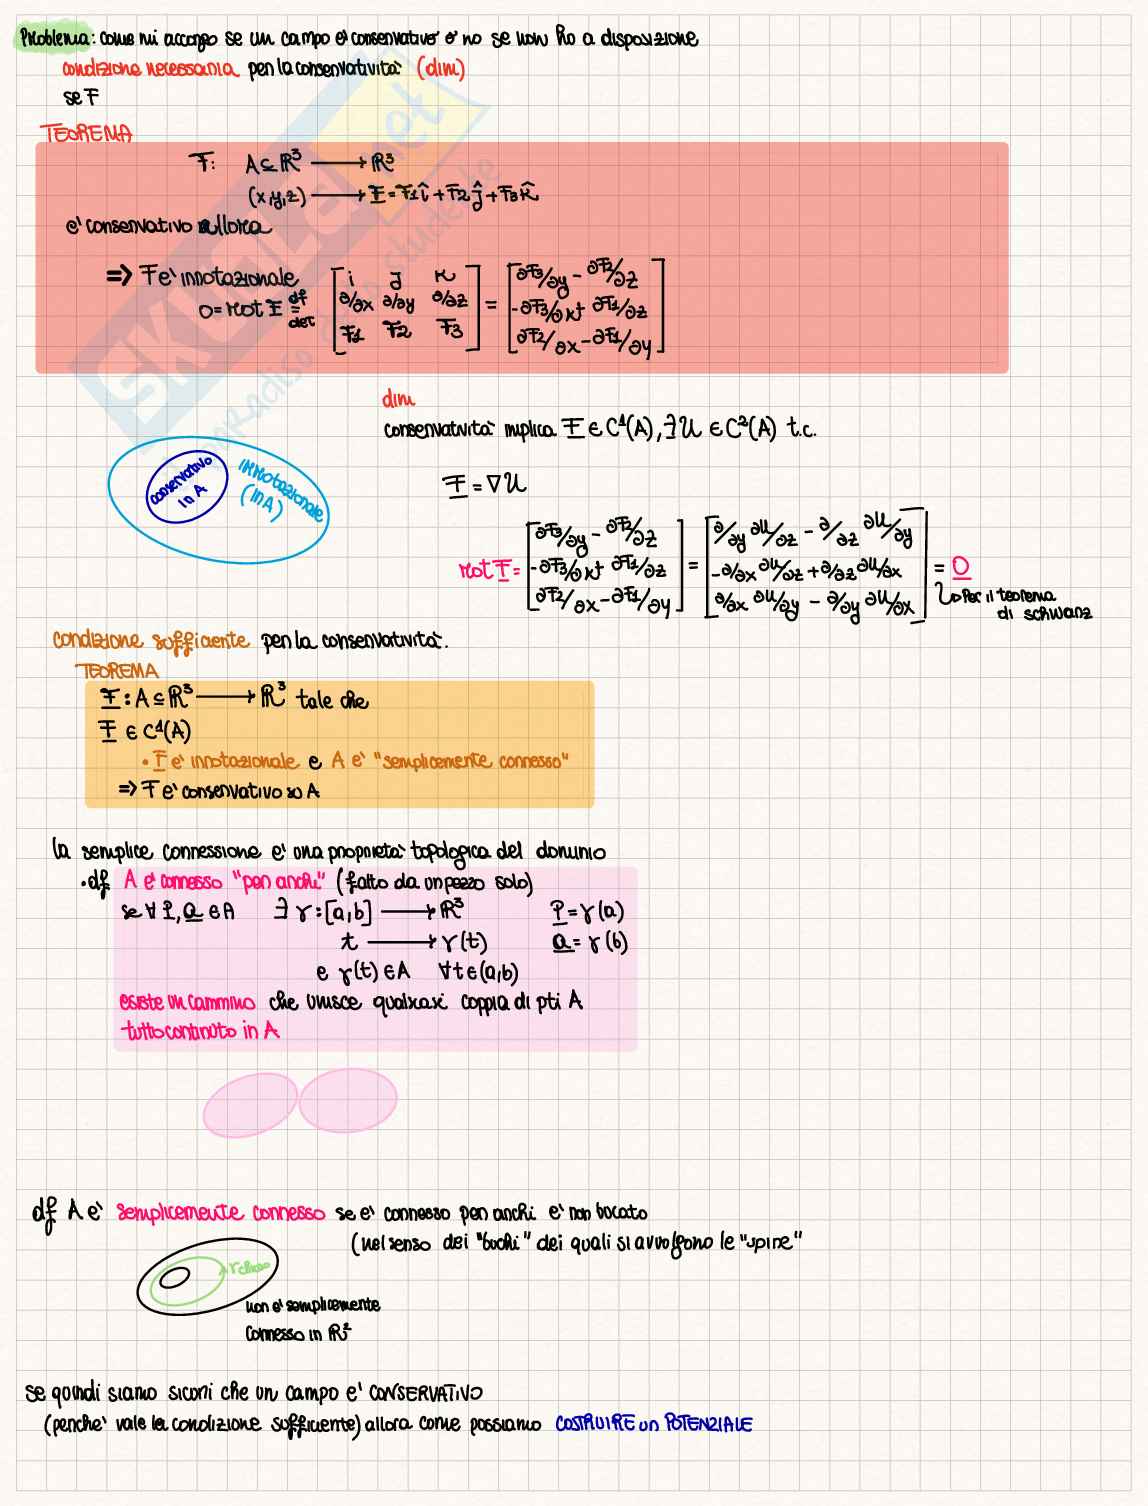 Problema: come mi accorgo se un campo è conservativo o no se non ho a disposizione
condizione necessaria per la conservatività (dim)
se F
TEOREMA
F: A⊆ℝ³ → ℝ³
(x,y,z) → F = F1 î + F2 ĵ + F3 k̂
è conservativo allora
⇒ F è irrotazionale
0 = rot F =df det [i j k; ∂/∂x ∂/∂y ∂/∂z; F1 F2 F3] = [∂F3/∂y - ∂F2/∂z; -∂F3/∂x + ∂F1/∂z; ∂F2/∂x - ∂F1/∂y]
dim
conservatività implica F ∈ C¹(A), ∃ U ∈ C²(A) t.c.
conservativo in A
irrotazionale (in A)
F = ∇U
rot F = [∂F3/∂y - ∂F2/∂z; -∂F3/∂x + ∂F1/∂z; ∂F2/∂x - ∂F1/∂y] = [∂/∂y ∂U/∂z - ∂/∂z ∂U/∂y; -∂/∂x ∂U/∂z + ∂/∂z ∂U/∂x; ∂/∂x ∂U/∂y - ∂/∂y ∂U/∂x] = 0
Per il teorema
di schwarz
condizione sufficiente per la conservatività.
TEOREMA
F: A⊆ℝ³ → ℝ³ tale che
F ∈ C¹(A)
• F è irrotazionale e A è "semplicemente connesso"
⇒ F è conservativo su A
la semplice connessione è una proprietà topologica del dominio
• df A è connesso "per archi" (fatto da un pezzo solo)
se ∀ P, Q ∈ A ∃ γ: [a,b] → ℝ³ P = γ(a)
t → γ(t) Q = γ(b)
e γ(t) ∈ A ∀ t ∈ (a,b)
esiste un cammino che unisce qualsiasi coppia di pti A
tutto contenuto in A
df A è semplicemente connesso se è connesso per archi e non bucato
(nel senso dei "buchi" dei quali si avvolgono le "spire"
γ chiuso
non è semplicemente
connesso in ℝ²
se quindi siamo sicuri che un campo è CONSERVATIVO
(perché vale la condizione sufficiente) allora come possiamo COSTRUIRE un POTENZIALE